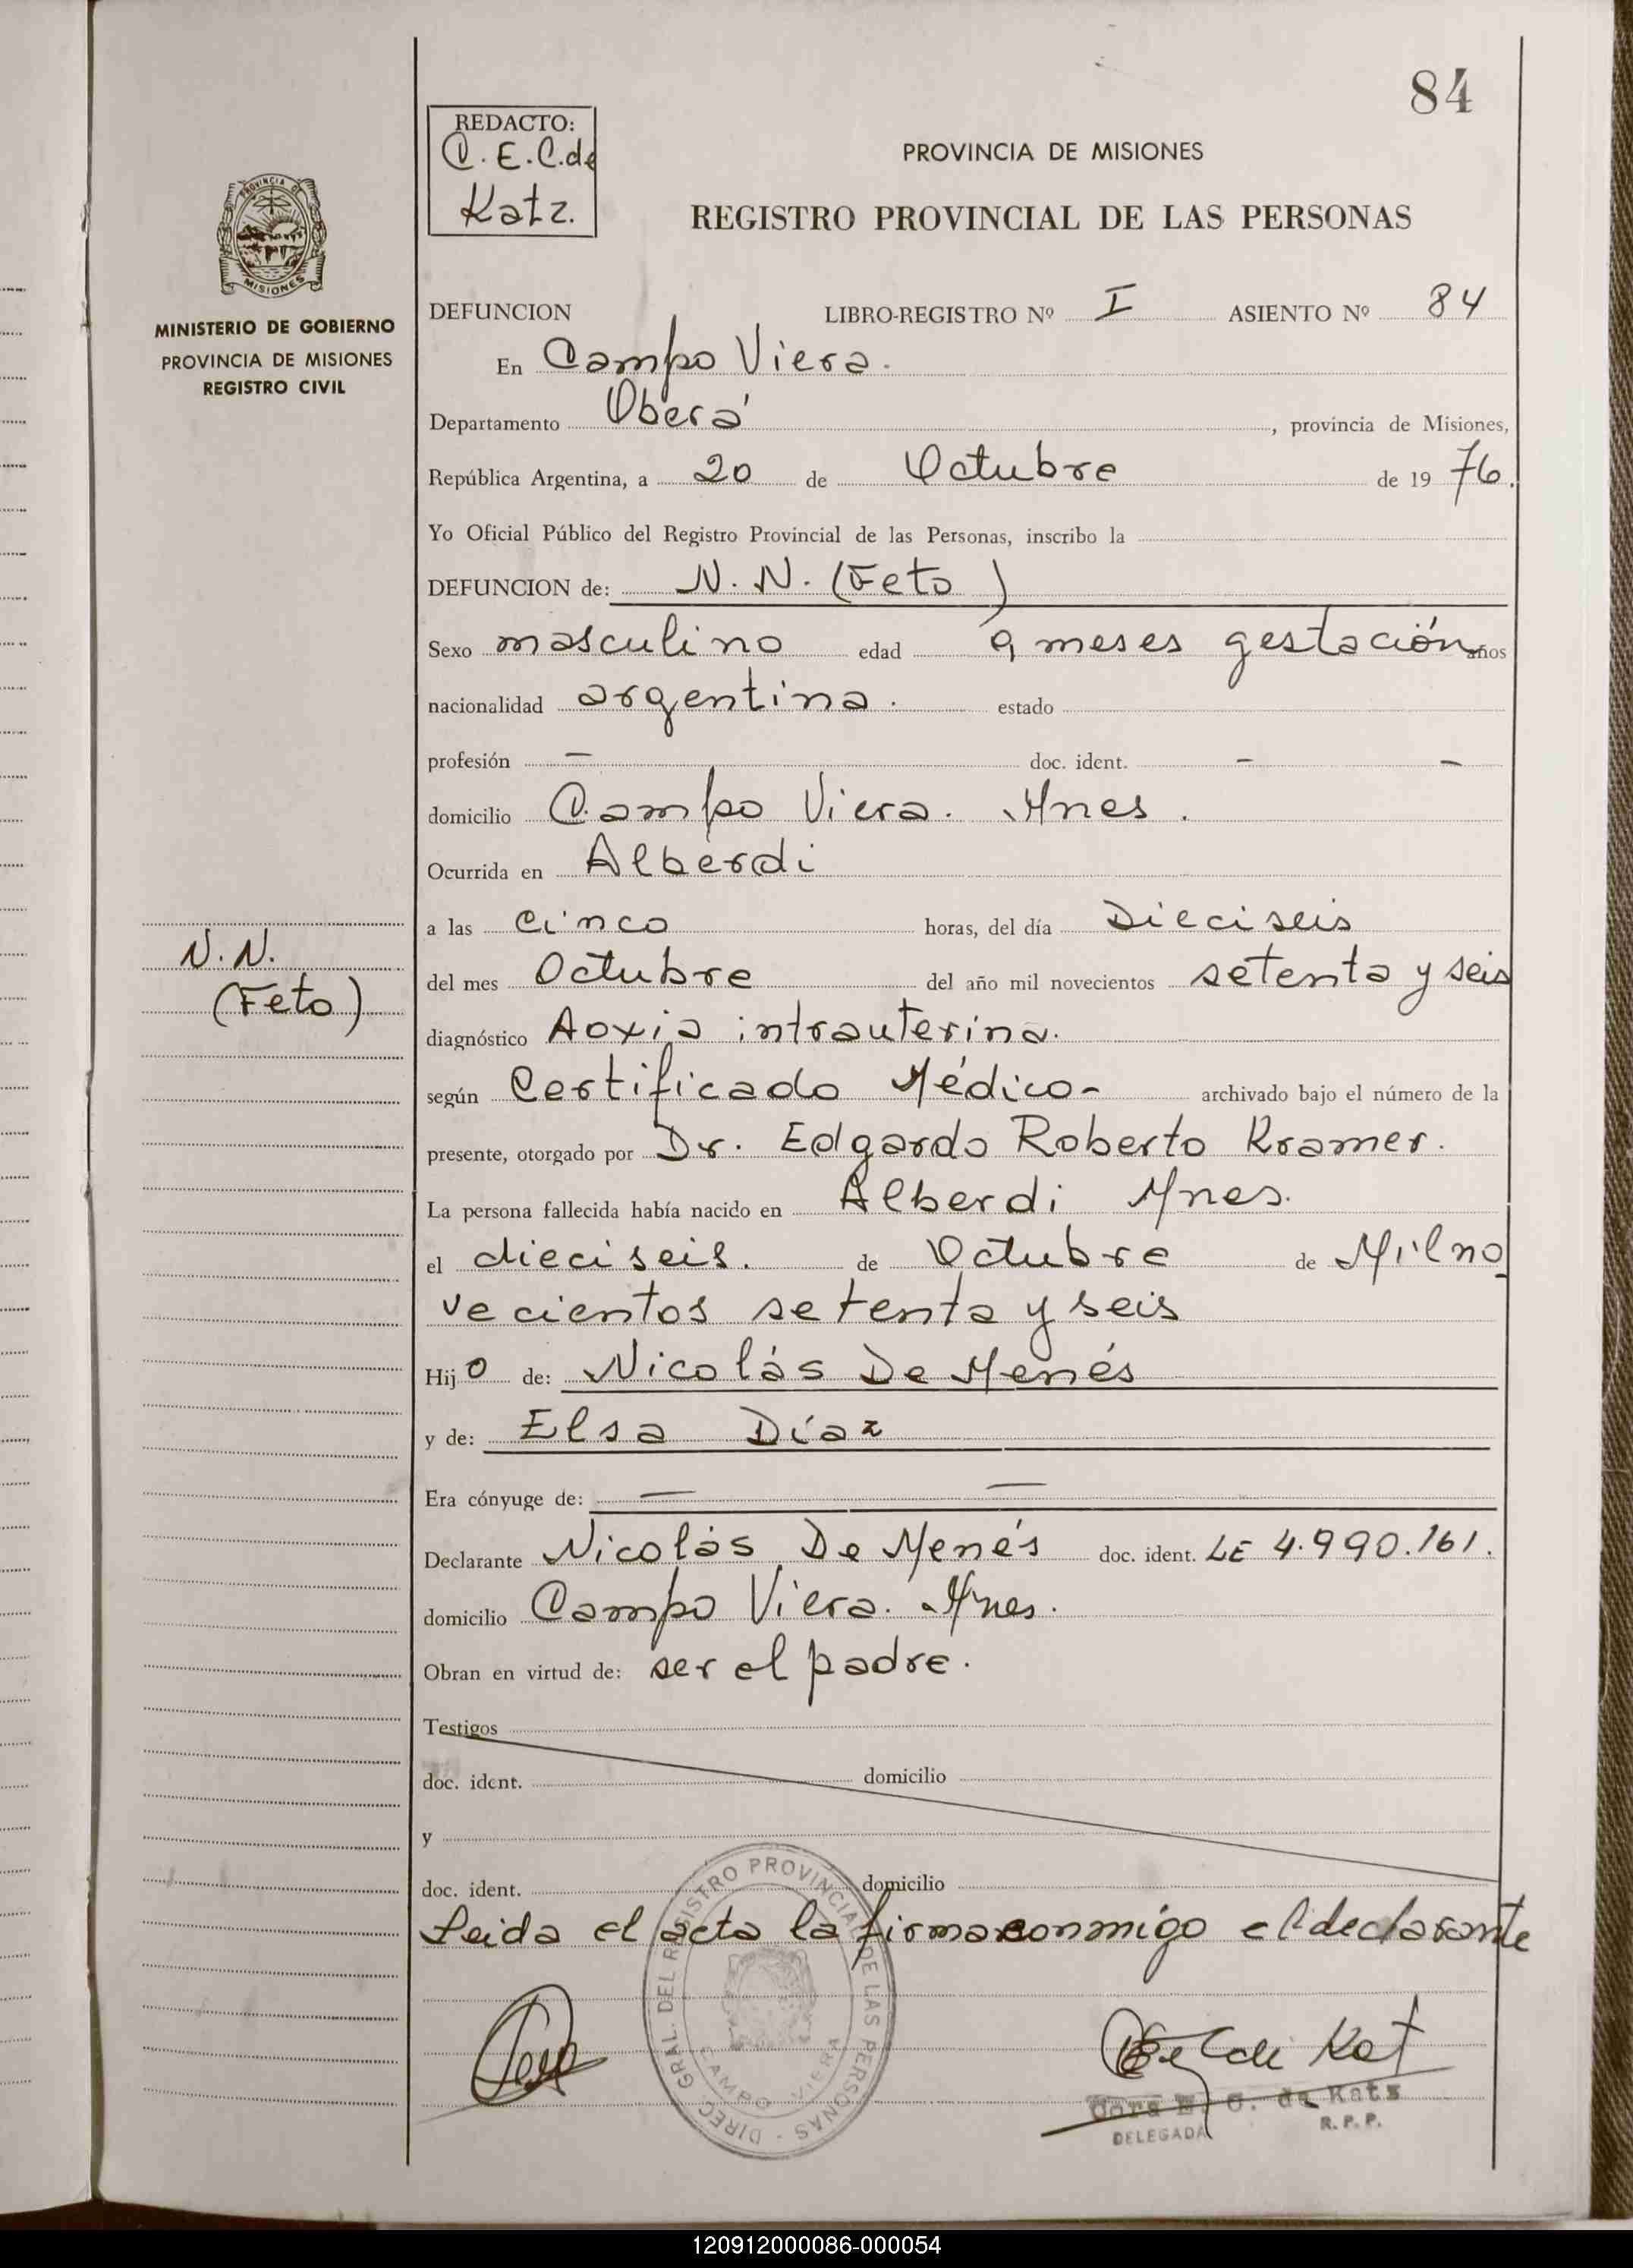 84
REDACTO:
C. E. C. de
Katz.
PROVINCIA DE MISIONES
REGISTRO PROVINCIAL DE LAS PERSONAS
PROVINCIA DE
MISIONES
MINISTERIO DE GOBIERNO
PROVINCIA DE MISIONES
REGISTRO CIVIL
DEFUNCION LIBRO-REGISTRO Nº I ASIENTO Nº 84
En Campo Viera.
Departamento Oberá, provincia de Misiones,
República Argentina, a 20 de Octubre de 1976.
Yo Oficial Público del Registro Provincial de las Personas, inscribo la
DEFUNCION de: N. N. (Feto)
Sexo masculino edad 9 meses gestación años
nacionalidad argentina. estado
profesión — doc. ident. — —
domicilio Campo Viera. Mnes.
Ocurrida en Alberdi
a las cinco horas, del día Dieciseis
del mes Octubre del año mil novecientos setenta y seis
N. N.
(Feto)
diagnóstico Aoxia intrauterina.
según Certificado Médico- archivado bajo el número de la
presente, otorgado por Dr. Edgardo Roberto Kramer.
La persona fallecida había nacido en Alberdi Mnes.
el dieciseis. de Octubre de Milno
vecientos setenta y seis
Hijo de: Nicolás De Menés
y de: Elsa Díaz
Era cónyuge de: — —
Declarante Nicolás De Menés doc. ident. LE 4.990.161.
domicilio Campo Viera. Mnes.
Obran en virtud de: ser el padre.
Testigos
doc. ident. domicilio
y
doc. ident. domicilio
Leida el acta la firma conmigo el declarante
DIREC. GRAL. DEL REGISTRO PROVINCIAL DE LAS PERSONAS -
CAMPO VIERA
Cora E. C. de Katz
DELEGADA R. P. P.
120912000086-000054